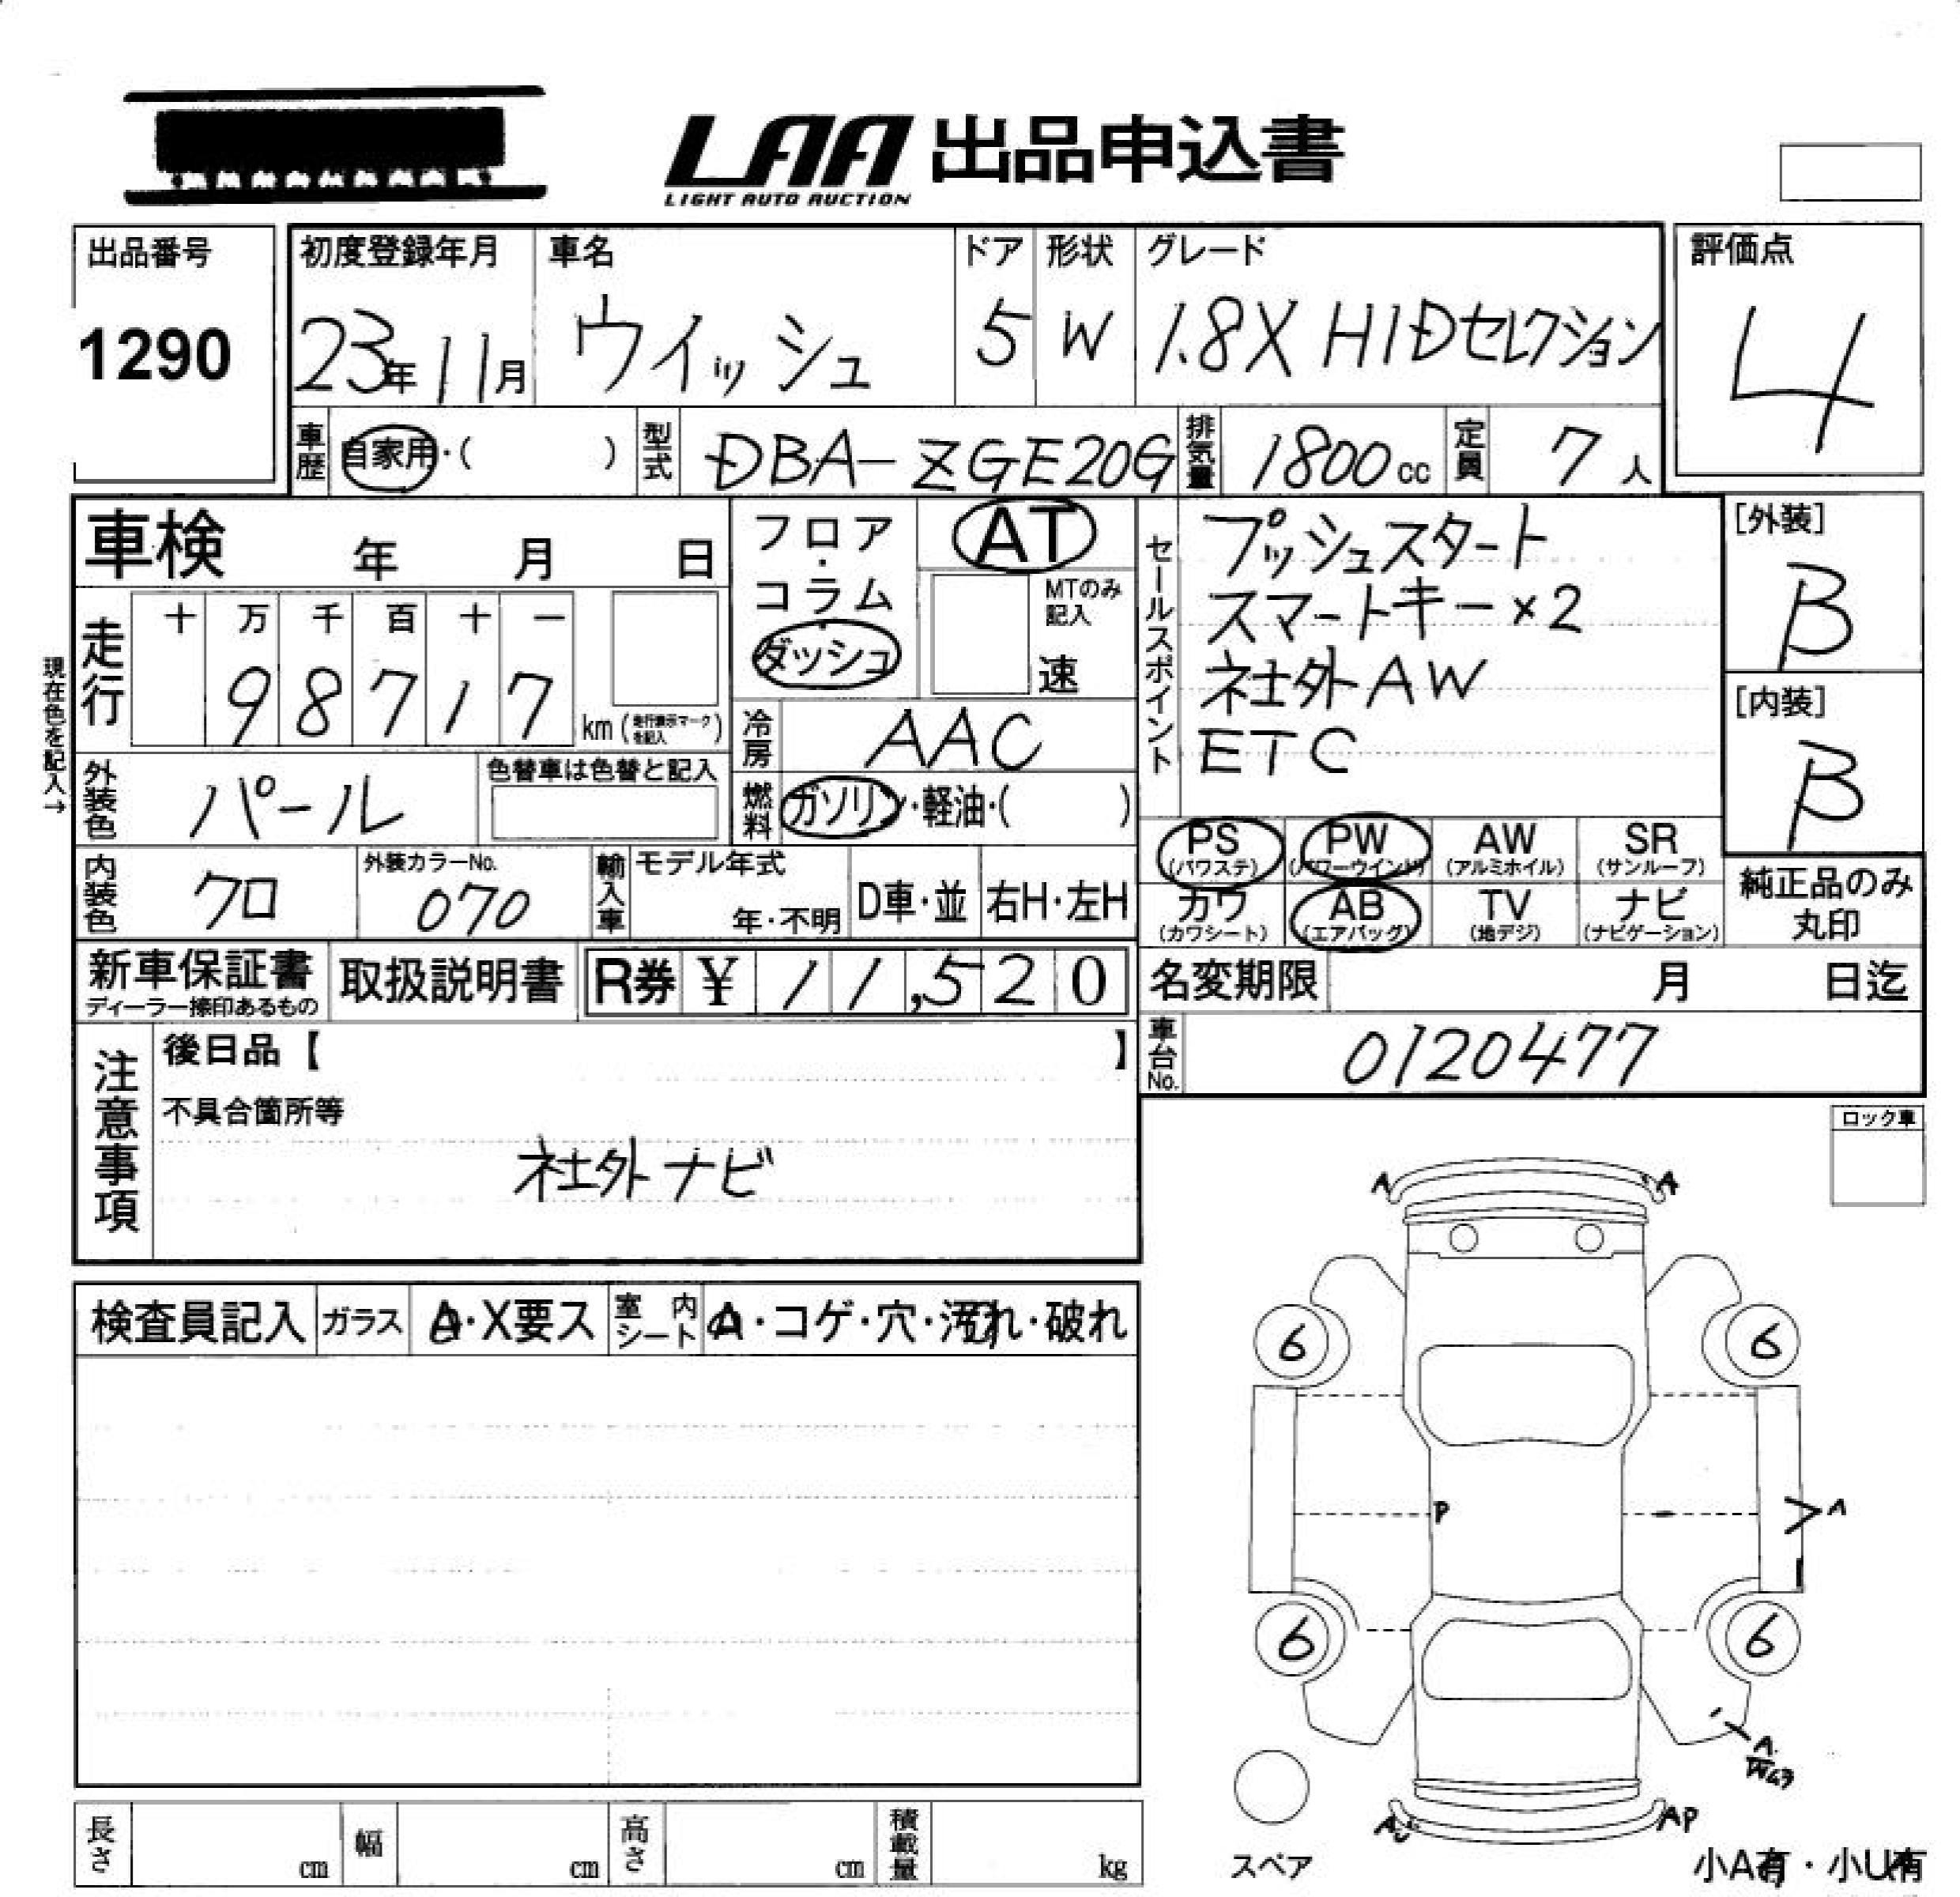 LAA 出品申込書
LIGHT AUTO AUCTION
出品番号
1290
初度登録年月
23年11月
車名
ウイッシュ
ドア
5
形状
W
グレード
1.8X HIDセレクション
評価点
4
車歴
自家用・( )
型式
DBA-ZGE20G
排気量
1800cc
定員
7人
車検 年 月 日
フロア・コラム・ダッシュ
AT
MTのみ記入
速
セールスポイント
プッシュスタート
スマートキー×2
社外AW
ETC
[外装]
B
[内装]
B
現在色を記入→
走行
十 万 千 百 十 一
9 8 7 1 7
km (走行表示マークを記入)
冷房
AAC
外装色
パール
色替車は色替と記入
燃料
ガソリン・軽油・( )
PS (パワステ)
PW (パワーウインド)
AW (アルミホイル)
SR (サンルーフ)
カワ (カワシート)
AB (エアバッグ)
TV (地デジ)
ナビ (ナビゲーション)
純正品のみ
丸印
内装色
クロ
外装カラーNo.
070
輸入車
モデル年式
年・不明
D車・並
右H・左H
新車保証書
ディーラー捺印あるもの
取扱説明書
R券 ¥ 11,520
名変期限 月 日迄
車台No.
0120477
注意事項
後日品【 】
不具合箇所等
社外ナビ
ロック車
検査員記入
ガラス
A・X要ス
室内シート
A・コゲ・穴・汚れ・破れ
A
A
6
6
P
A
6
6
A
A
AP
スペア
小A有・小U有
長さ cm
幅 cm
高さ cm
積載量 kg